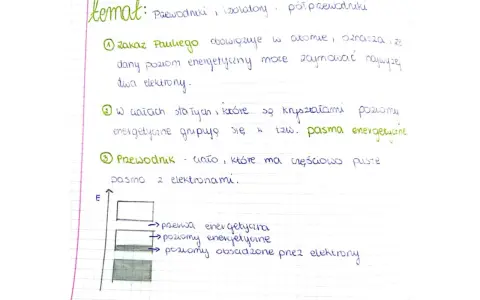 temat: Przewodniki, izolatory. półprzewodniki
① zakaz Pauliego obowiązuje w atomie, oznacza, że
dany poziom energetyczny może zajmować najwyżej
dwa elektrony.
② W ciałach stałych, które są kryształami poziomy
energetyczne grupują się w tzw. pasma energetyczne
③ Przewodnik - ciało, które ma częściowo puste
pasmo z elektronami.
E
→ przerwa energetyczna
→ poziomy energetyczne
→ poziomy obsadzone przez elektrony